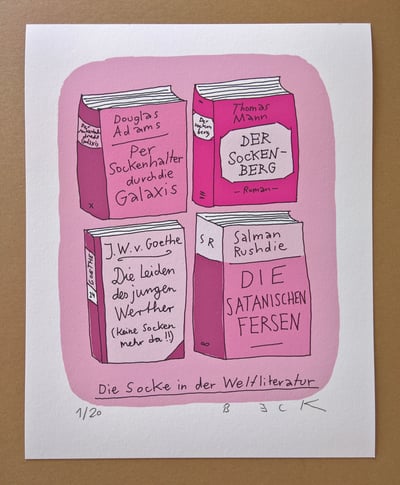 Douglas
Adams
Per
Sockenhalter
durch die
Galaxis
Thomas
Mann
DER
SOCKEN-
BERG
- Roman -
J. W. v. Goethe
Die Leiden
des jungen
Werther
(Keine Socken
mehr da!!)
GOETHE
S R
Salman
Rushdie
DIE
SATANISCHEN
FERSEN
Die Socke in der Weltliteratur
1/20
BECK